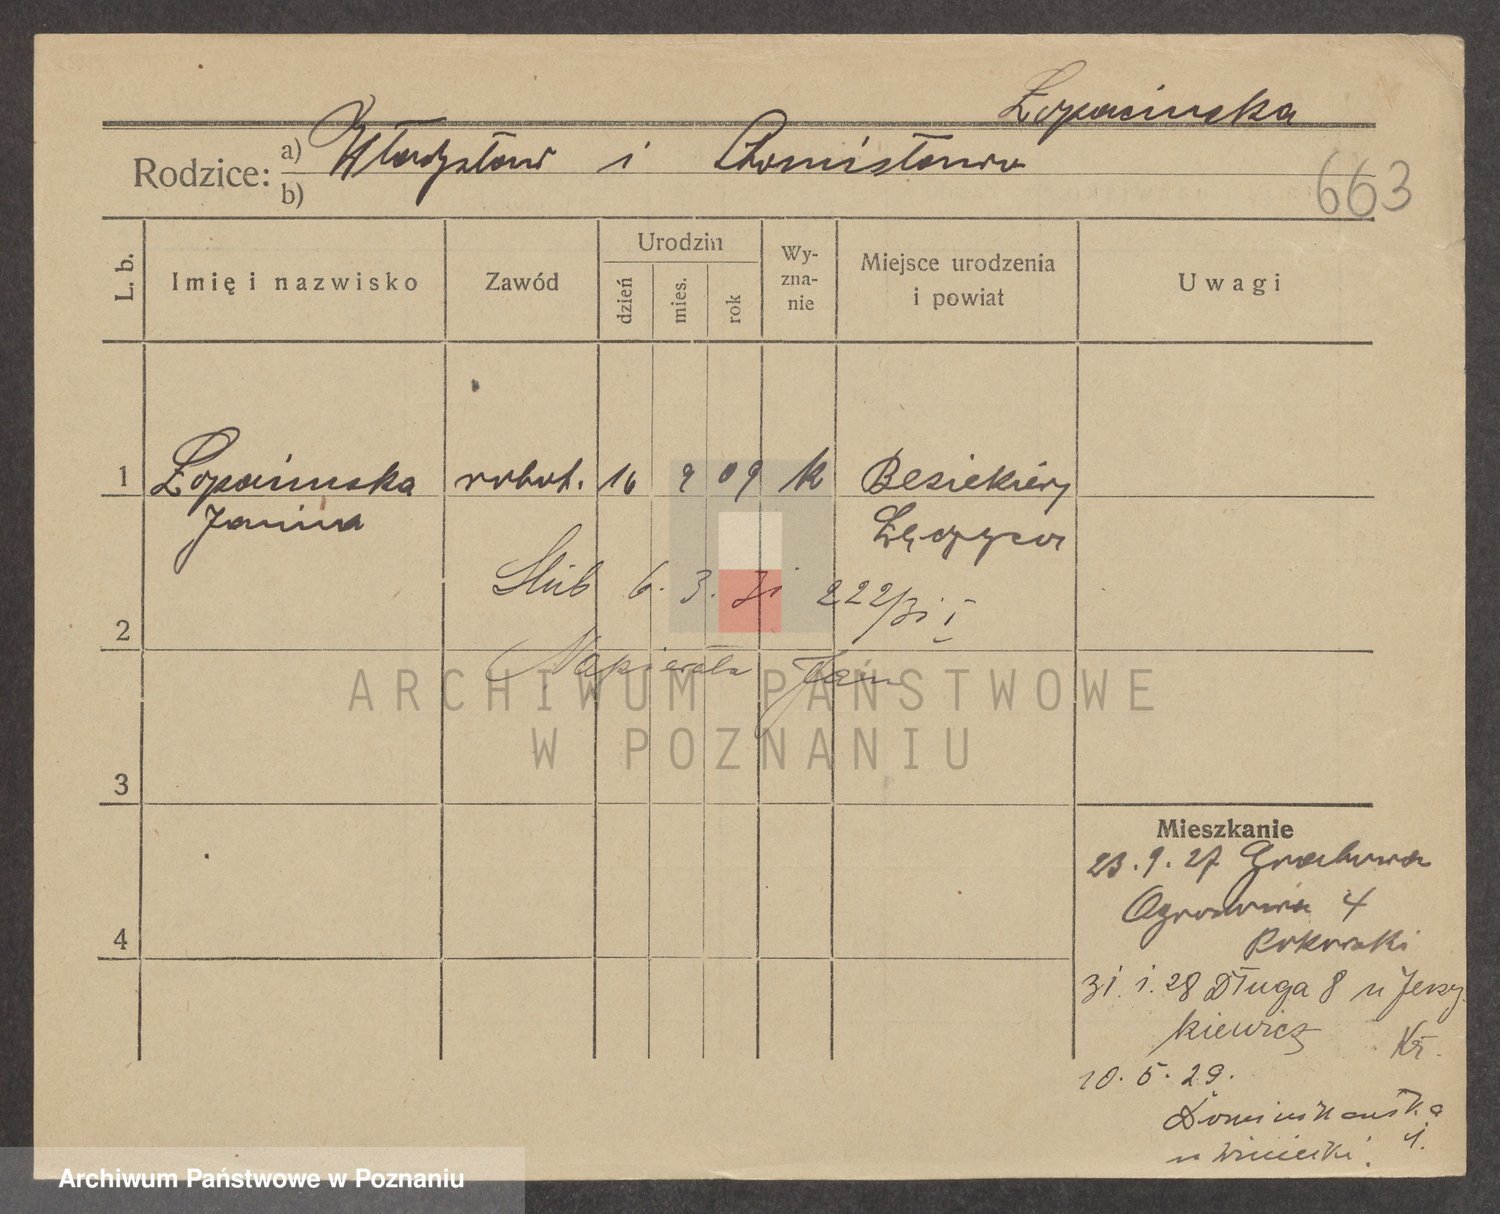 Łopacińska
Rodzice: a) Władysław i Bronisława
b)
663
L. b.
Imię i nazwisko
Zawód
Urodzin
dzień
mies.
rok
Wy-
zna-
nie
Miejsce urodzenia
i powiat
Uwagi
1 Łopacińska robot. 16 9 09 Besiekiery
Janina Łęczyca
Ślub 6. 3. 31 222/31 I
2
Napierała Jan
ARCHIWUM PAŃSTWOWE
W POZNANIU
3
Mieszkanie
23. 9. 27 Grabowa
4
Ogrodowa 4
Rokowski
31 1. 28 Długa 8 u Jerzy
kiewicz
10. 5. 29.
Dominikańska
u 1.
Archiwum Państwowe w Poznaniu